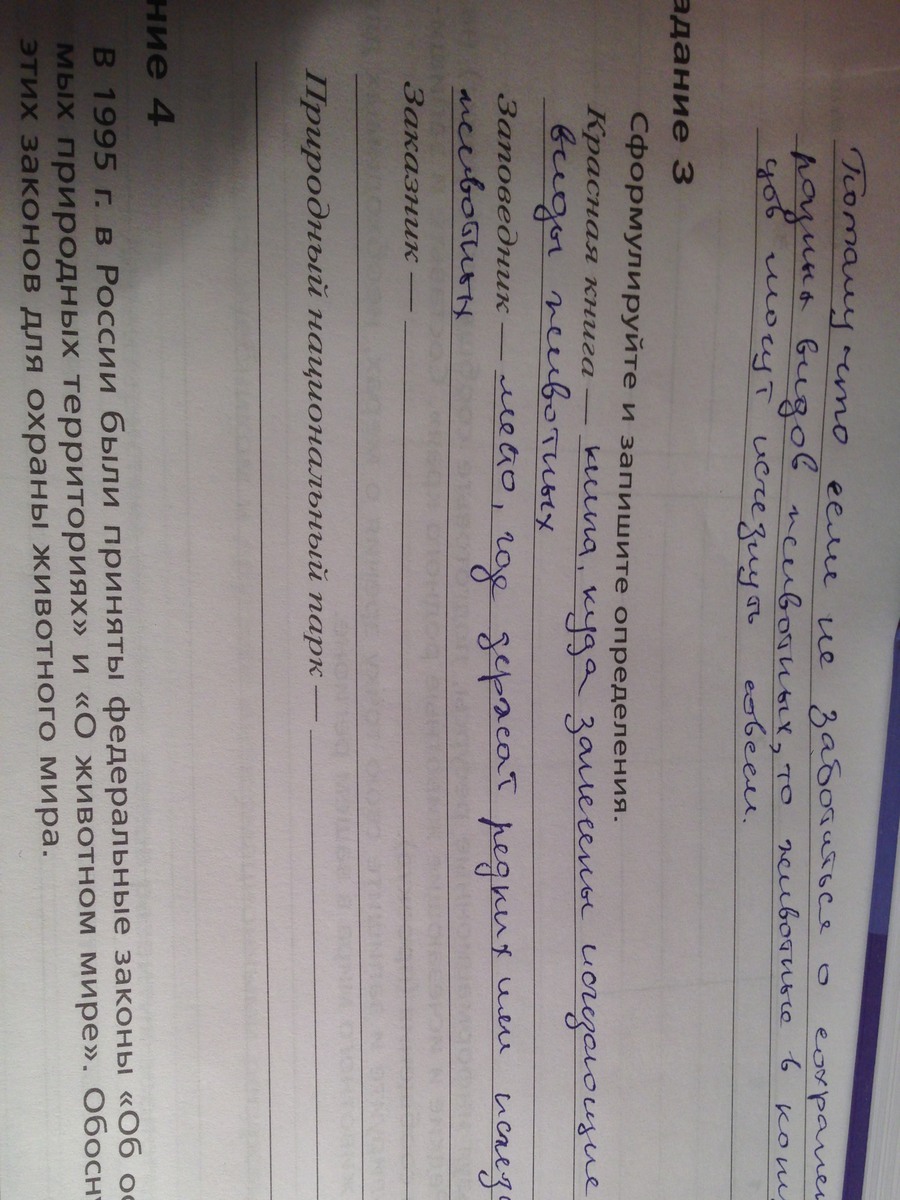 Потому что если не заботиться о
видов животных, то животные в
могут исчезнуть совсем.
адание 3
Сформулируйте и запишите определения.
Красная книга — книга, куда занесены исчезающие
виды животных
Заповедник — место, где держат редких или
животных
Заказник —
Природный национальный парк —
ние 4
В 1995 г. в России были приняты федеральные законы «Об ос
мых природных территориях» и «О животном мире». Обосн
этих законов для охраны животного мира.